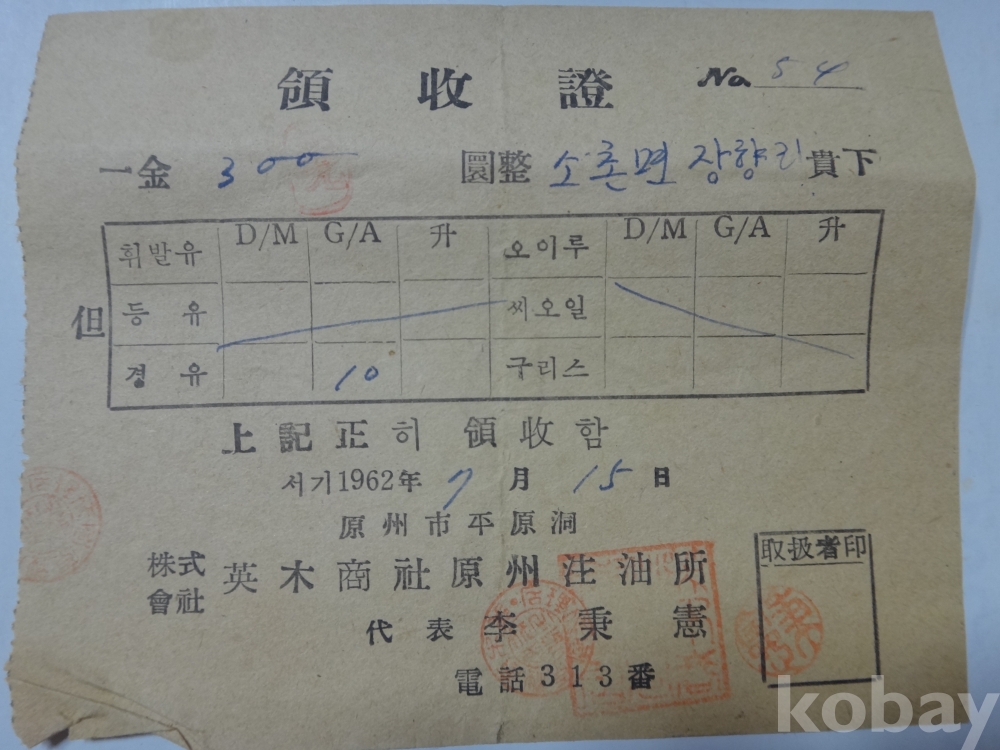 領收證 No 54
一金 300 圜整 소촌면 장향리 貴下
D/M G/A 升 D/M G/A 升
휘발유 오이루
但 등유 씨오일
경유 10 구리스
上記正히 領收함
서기1962年 7月 15日
原州市平原洞
株式會社 英木商社原州注油所
取扱者印
代表 李秉憲
電話313番
kobay